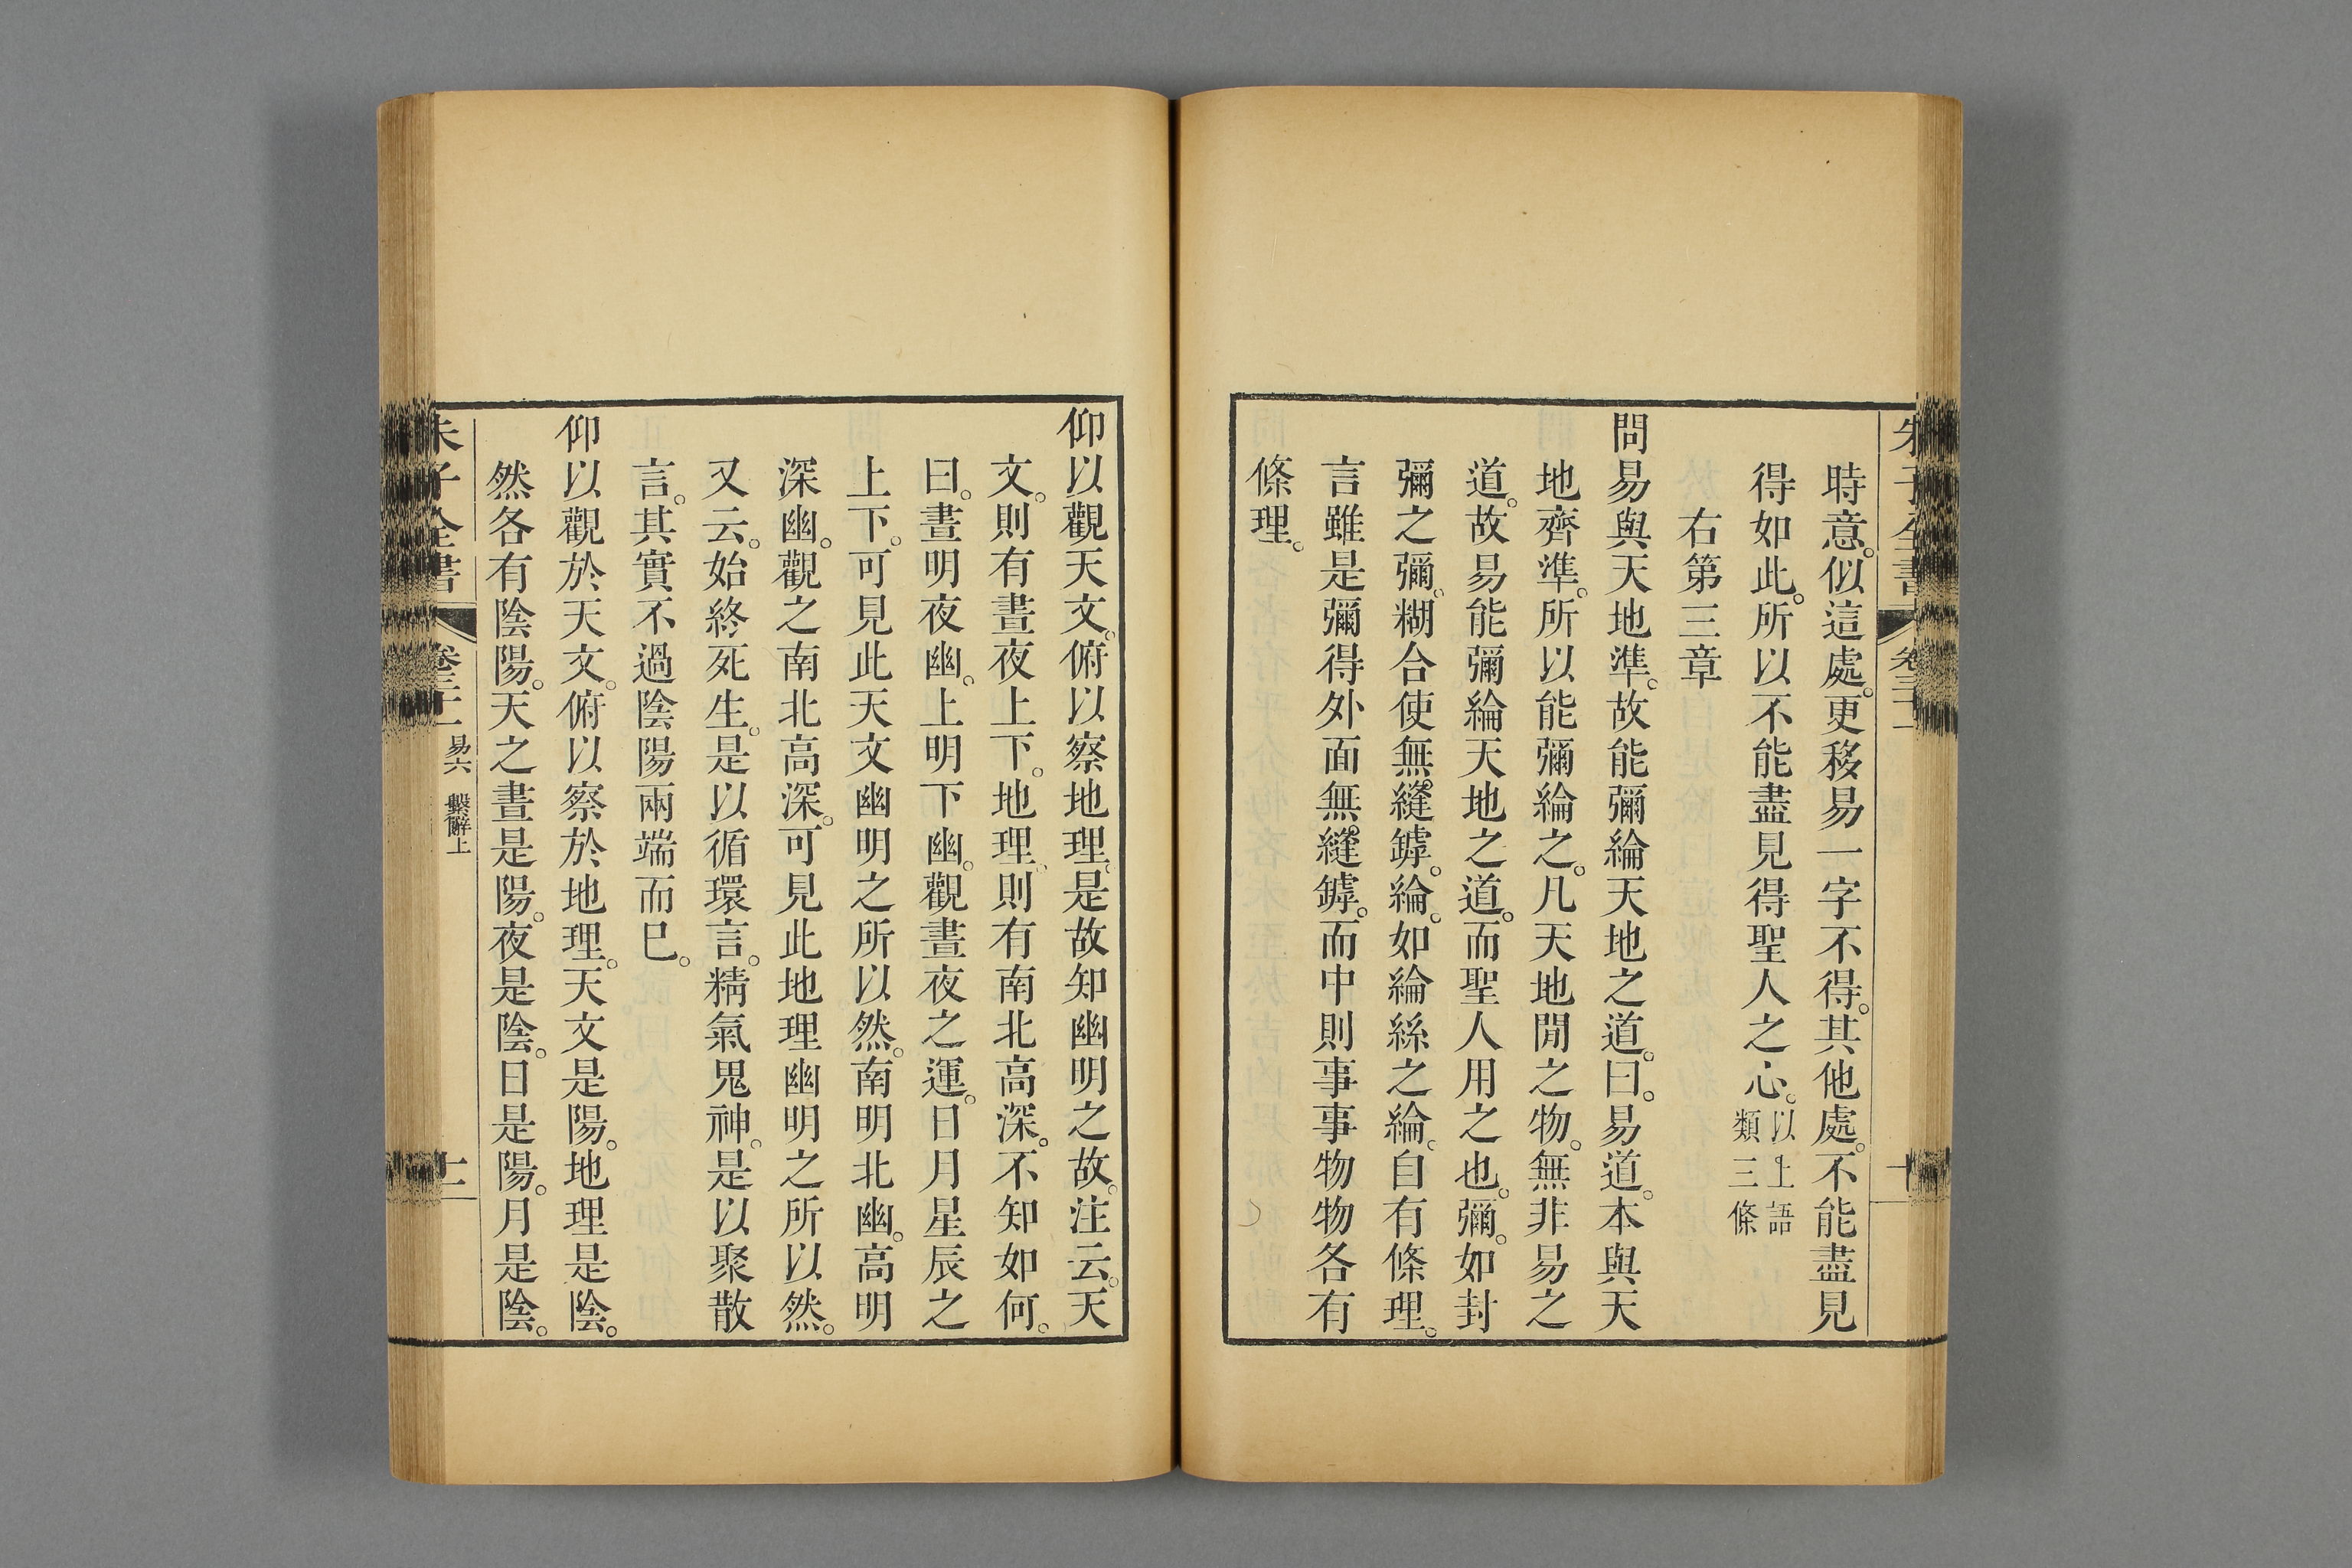 時意。似這處。更移易一字不得。其他處。不能盡見
得如此。所以不能盡見得聖人之心。以上語類三條
右第三章
問易與天地準。故能彌綸天地之道。曰。易道。本與天
地齊準。所以能彌綸之。凡天地閒之物。無非易之
道。故易能彌綸天地之道。而聖人用之也。彌。如封
彌之彌。糊合使無縫罅。綸。如綸絲之綸。自有條理。
言雖是彌得外面無縫罅。而中則事事物物各有
條理。
仰以觀天文。俯以察地理。是故知幽明之故。注云。天
文。則有晝夜上下。地理。則有南北高深。不知如何。
曰。晝明夜幽。上明下幽。觀晝夜之運。日月星辰之
上下。可見此天文幽明之所以然。南明北幽。高明
深幽。觀之南北高深。可見此地理幽明之所以然。
又云。始終死生。是以循環言。精氣鬼神。是以聚散
言。其實不過陰陽兩端而已。
仰以觀於天文。俯以察於地理。天文是陽。地理是陰。
然各有陰陽。天之晝是陽。夜是陰。日是陽。月是陰。
朱子全書
易六 繫辭上